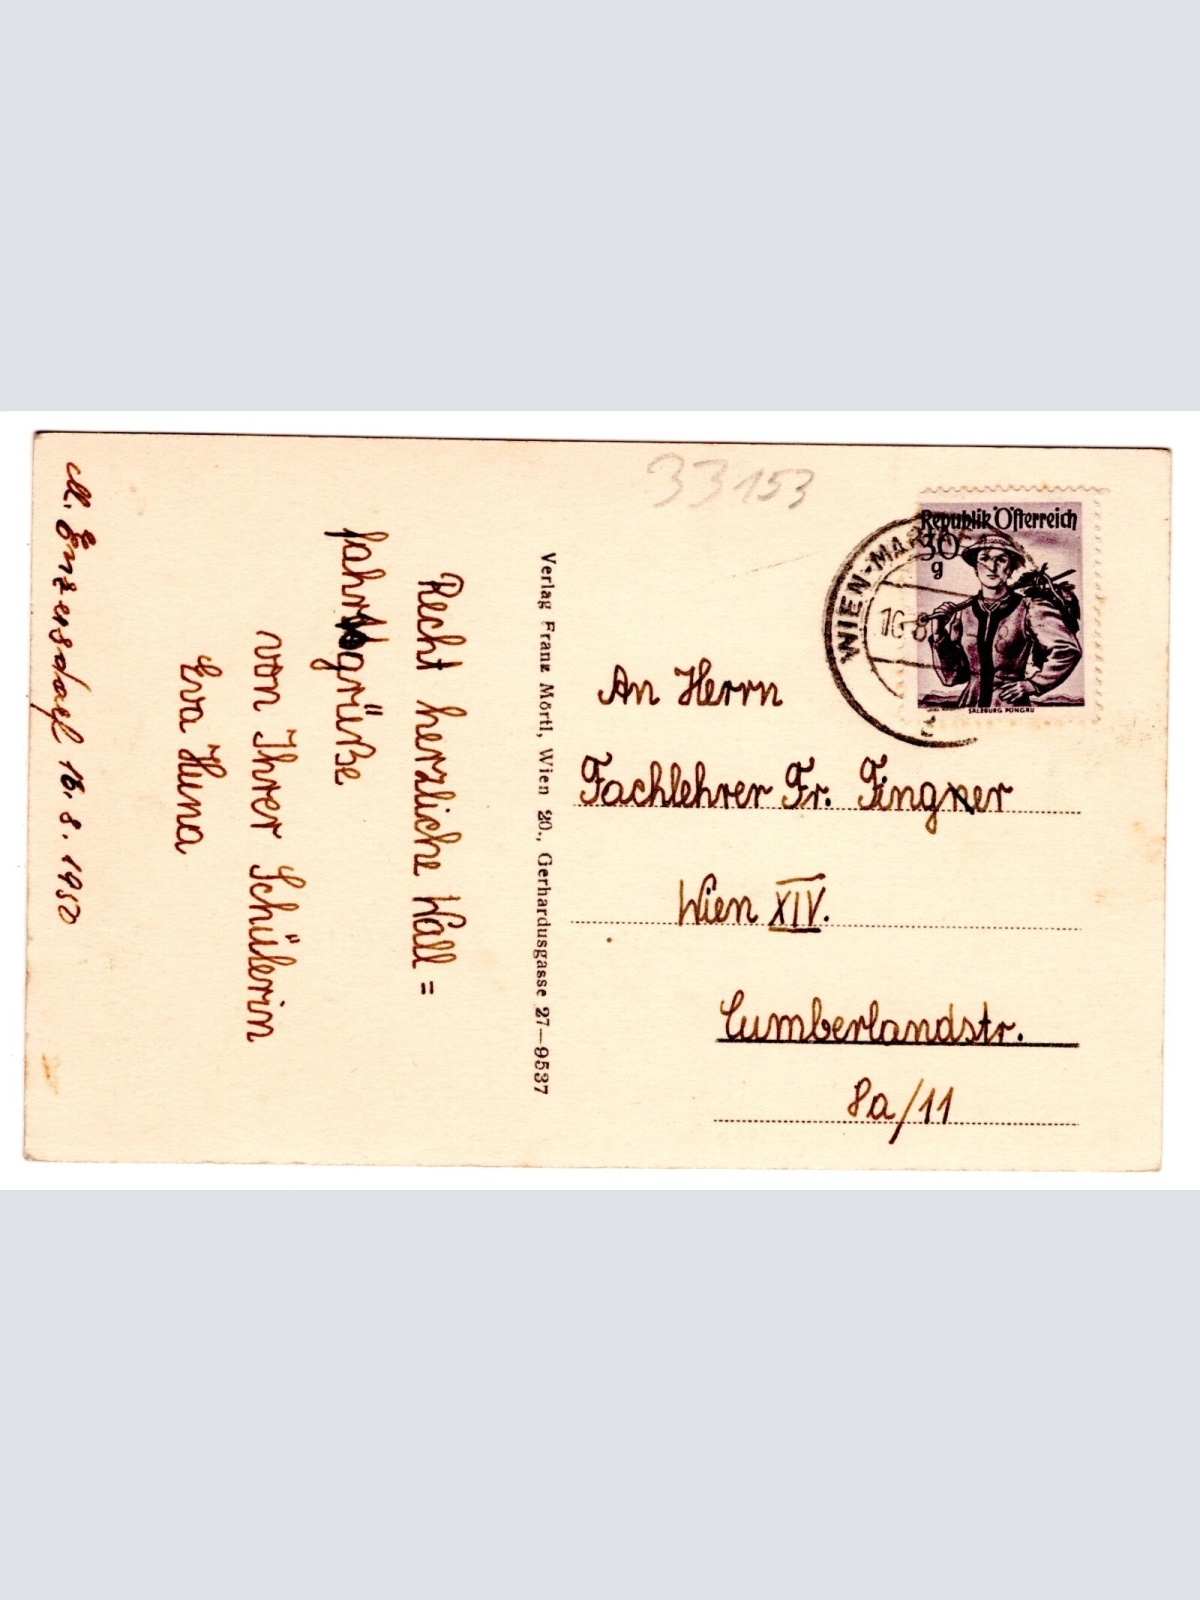 33153
Republik Österreich
30
g
SALZBURG PONGAU
WIEN-MARIA
16.8
An Herrn
Fachlehrer Fr. Fingner
Wien XIV.
Cumberlandstr.
8a/11
Verlag Franz Mörtl, Wien 20., Gerhardusgasse 27—9537
Recht herzliche Wall=
fahrtsgrüße
von Ihrer Schülerin
Eva Huna
M. Enzersdorf 16.8.1950